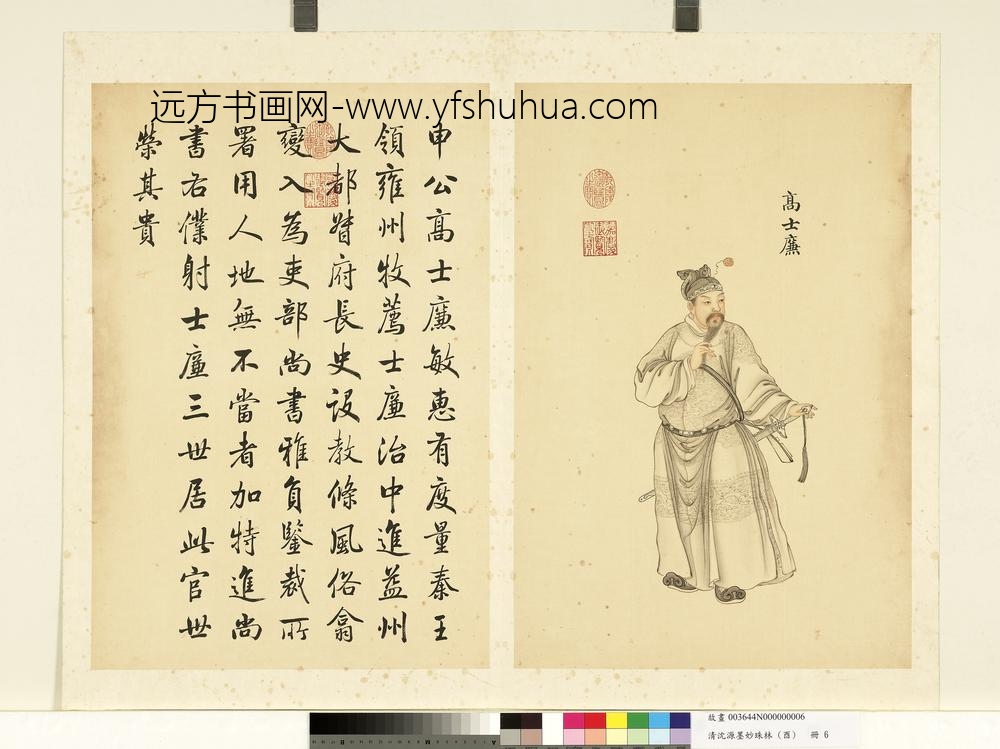 远方书画网-www.yfshuhua.com
高士廉
申公高士廉敏惠有度量秦王
領雍州牧薦士廉治中進益州
大都督府長史設教條風俗翕
變入為吏部尚書雅負鑒裁所
署用人地無不當者加特進尚
書右僕射士廉三世居此官世
榮其貴
故畫 003644N000000006
清沈源墨妙珠林(酉) 冊 6